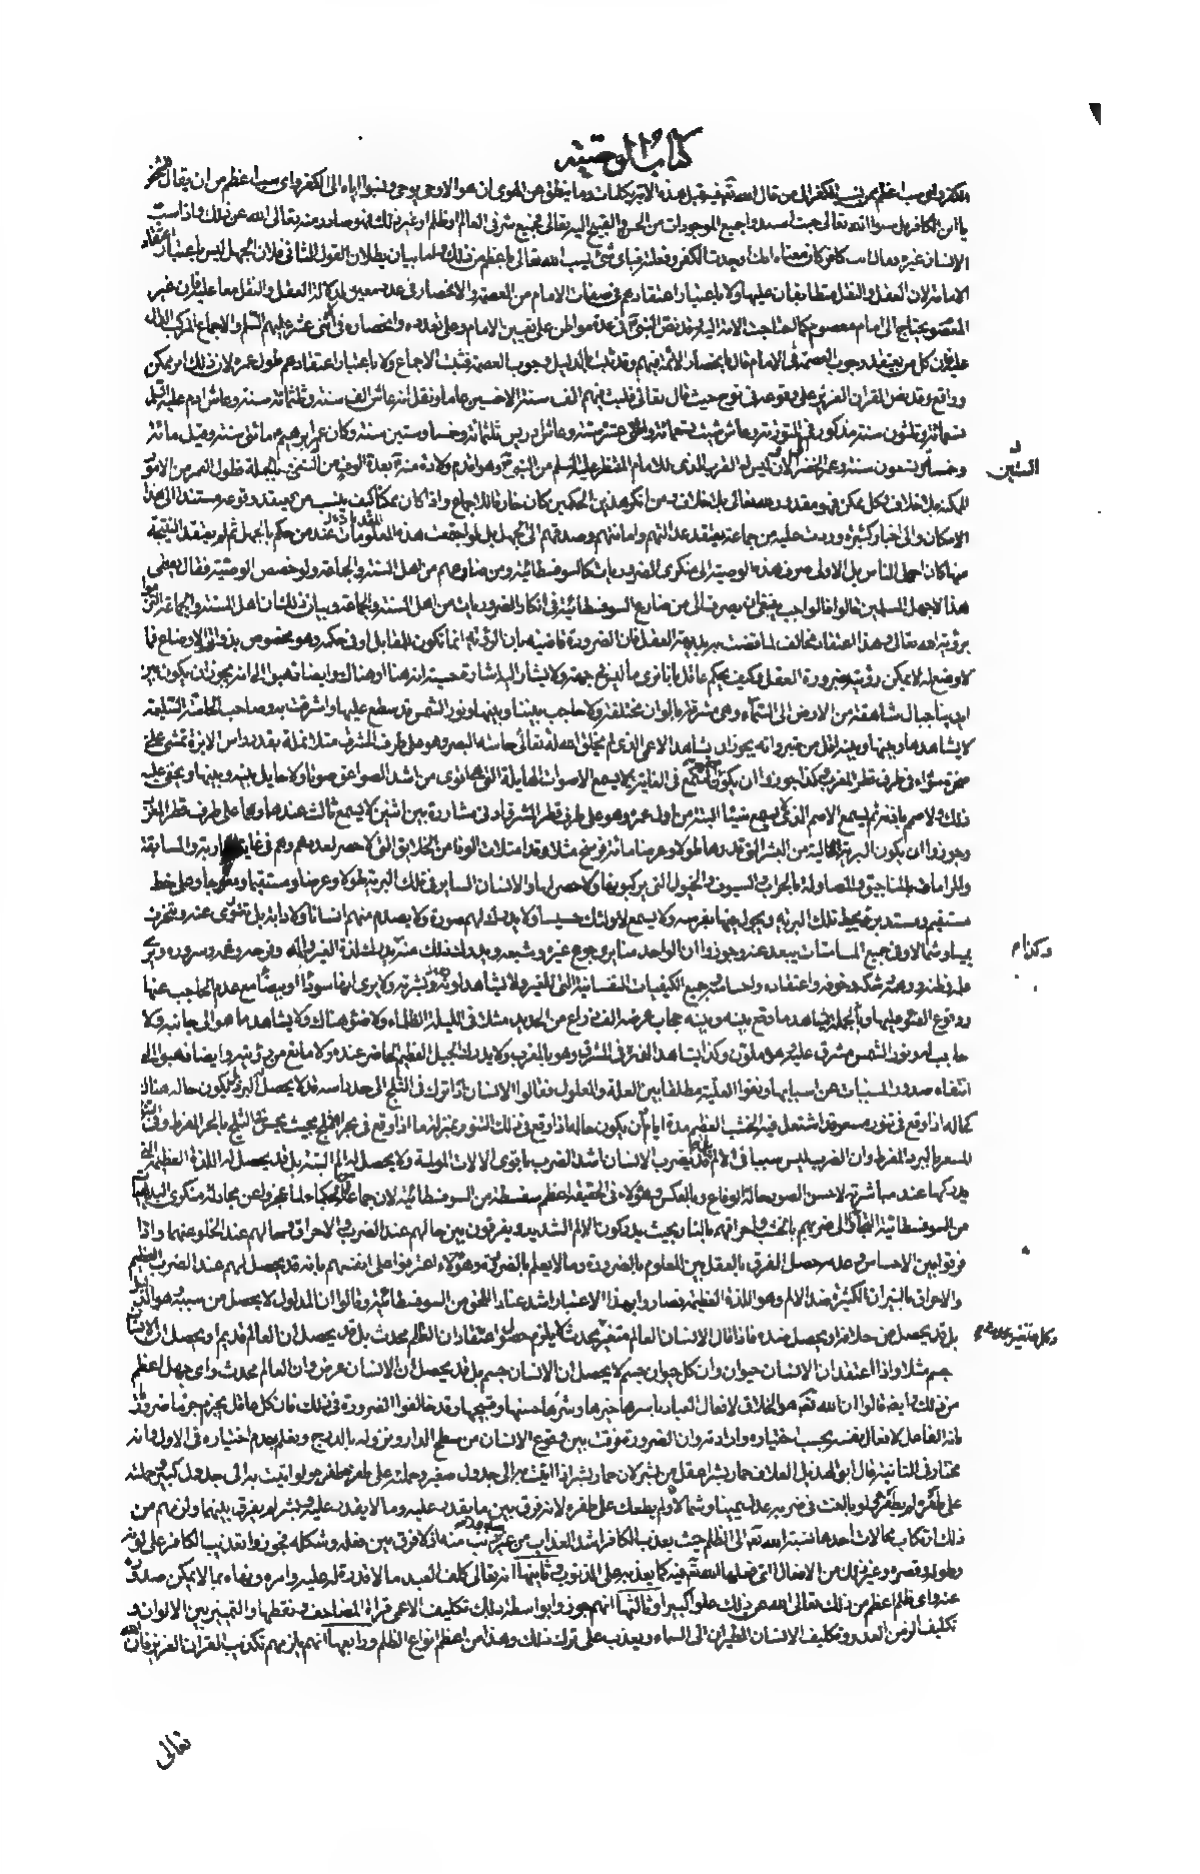 كتاب الوصية
الكفر واى سب اعظم من نسب الكفر الى من قال الله تعالى فيه قبل هذه الآية بكلمات وما ينطق عن الهوى ان هو الا وحى يوحى ونسبوا اياه الى الكفر واى سب اعظم من ان يقال الشخص
يا ابن الكافر بل سبوا الله تعالى حيث اسندوا جميع الموجودات من الحسن والقبيح اليه تعالى فجميع شر فى العالم او ظلم او غير ذلك فهو صادر منه تعالى الله عن ذلك واذا سب
الانسان غيره وقال انت كافر كان معناه انك اوجدت الكفر وفعلته فباى شئ يسب الله تعالى باعظم من ذلك واما بيان بطلان القول الثانى فلان الجهل ليس باعتبار اعتقاد
الامامة لان العقل والنقل متطابقان عليها ولا باعتبار اعتقادهم فى صفات الامام من العصمة والانحصار فى عدد معين لدلالة العقل والنقل معا عليه فان غير
المعصوم يحتاج الى امام معصوم كما احتاجت الامة اليه وقد نص النبى فى عدة مواطن على تعيين الامام وعلى تعدده وانحصاره فى اثنى عشر عليهم السلم والاجماع المركب الدال
عليه فان كل من يعتقد وجوب العصمة فى الامام قال بانحصار الائمة فيهم وقد ثبت بالدليل وجوب العصمة فثبت الاجماع ولا باعتبار اعتقادهم طول عمره لان ذلك امر ممكن
وواقع وقد نص القران العزيز على وقوعه فى نوح حيث قال تعالى فلبث فيهم الف سنة الا خمسين عاما ونقل انه عاش الف سنة وثلثمائة سنة وعاش ادم عليه السلم
تسعمائة وثلثون سنة مذكور فى التورية وعاش شيث تسعمائة واثنى عشر سنة وعاش ادريس ثلثمائة وخمسا وستين سنة وكان عمر ابرهيم مائتى سنة وقيل مائة
وخمسا وتسعون سنة وعمر الخضر الان ليس له القرب الذى للامام المنتظر عليه السلم من النبى وهو اقدم ولادة منه بعدة الوف من السنين وبالجملة فطول العمر من الامور
الممكنة بلا خلاف وكل ممكن فهو مقدور لله تعالى بلا خلاف فمن انكر هذين الحكمين كان خارقا للاجماع واذا كان ممكنا كيف ينسب من يعتقد وقوعه مستندا الى هذا
الامكان والى اخبار كثيرة وردت عليه من جماعة يعتقد عدالتهم وامانتهم وصدقهم الى الجهل بل لو اجتمعت هذه المعلومات عند من حكم بالجهل ثم لم يعتقد النتيجة
منها كان اجهل الناس بل الاولى صرف هذه الوصية الى منكرى الضروريات كالسوفسطائية ومن ضاهاهم من اهل السنة والجماعة ولو خصص الوصية فقال يعطى
هذا لاجهل المسلمين قالوا فالواجب ينبغى ان يصرف الى من ضارع السوفسطائية فى انكار الضروريات من اهل السنة والجماعة وبيان ذلك ان اهل السنة والجماعة التزموا
برؤية الله تعالى وهذا اعتقاد مخالف لما قضت به بديهة العقل فان الضرورة قاضية بان الرؤية انما تكون للمقابل او فى حكمه وهو مخصوص بذوات الاوضاع فما
لا وضع له لا يمكن رؤيته بضرورة العقل وكيف يحكم عاقل بانا نرى ما ليس فى جهة ولا يشار اليه اشارة حسية انه هنا او هناك وايضا ذهبوا الى انه يجوز ان يكون بين
ايدينا جبال شاهقة من الارض الى السماء وهى مشرقة بالوان مختلفة ولا حاجب بيننا وبينها ونور الشمس قد سطع عليها واشرقت به وصاحب الحاسة السليمة
لا يشاهدها وبينها وبينه اقل من شبر وانه يجوز ان يشاهد الاعمى الذى لم يخلق الله له تعالى حاسة البصر وهو على طرف المشرق مثلا نملة بقدر راس الابرة تمشى على
صخرة سوداء فى طرف قطر المغرب وكذا جوزوا ان يكون السميع فى الغاية لا يسمع الاصوات الهايلة التى هى اقوى من اشد الصواعق صوتا ولا حايل بينه وبينها ويخفى عليه
ذلك ولا صمم يافته ثم يسمع الاصم الذى لا يسمع شيئا البتة من اول عمره وهو على طرف قطر المشرق ادنى مشاورة بين اثنين لا يسمع ثالث عندهما وهما على طرف قطر المغرب
وجوزوا ان يكون البرية الخالية من البشر التى قدرها طولا وعرضا مائة فرسخ مثلا وقد امتلات الوفا من الخلايق التى لا حصر لعددهم وهم فى غاية المحاربة والمسابقة
والمراماة بالمناجيق والمصاولة بالحراب والسيوف والخيول التى يركبونها ولا حصر لها والانسان الساير فى تلك البرية طولا وعرضا ومستقيما ومعوجا وعلى خط
مستقيم ومستدير محيط تلك البرية ويجول جهتها بفرسه ولا يسمع لاولئك حسيسا ولا يدرك لهم صورة ولا يصدم منهم انسانا ولا دابة بل تنزوى عنه وتنحرف
يمينا وشمالا وفى جميع المسامتات يبعد عنه وجوزوا ان الواحد منا يرى جوع غيره وشبعه ويدرك ذلك منه وكذا يدرك لذة الغير والمه وفرحه وغمه وسروره ويرى
علمه وظنه ووهمه وشكه وخوفه واعتقاده واحساسه وجميع الكيفيات النفسانية التى للغير ولا يشاهد لونه وبشرته ولا يرى ارضا سودا او بيضا مع عدم الحاجب عنها
ووقوع الضوء عليها وبالجملة يشاهد ما وقع بينه وبينه حجاب عرضه الف ذراع من الحديد مثلا فى الليلة الظلماء ولا ضوء هناك ولا يشاهد ما هو الى جانبه ولا
حاجب له ونور الشمس مشرق عليه وهو ملون وكذا يشاهد الذرة فى المشرق وهو بالمغرب ولا يدرك الجبل العظيم الحاضر عنده ولا مانع من رؤيته وايضا ذهبوا الى
انتفاء صدور المسببات عن اسبابها ونفوا العلية مطلقا بين العلة والمعلول فقالوا الانسان اذا ترك فى الثلج الى حد راسه قد لا يحصل له البرد ويكون حاله هناك
كحاله اذا وقع فى تنور مسعور قد اشتعل فيه الخشب العظيم مدة ايام وان يكون حاله اذا وقع فى ذلك التنور بمنزلة ما اذا وقع فى بحر الثلج بحيث يحس فى الثلج بالحر المفرط وفى التنور
المسعر بالبرد المفرط وان الضرب ليس سببا فى الالم بل قد يضرب الانسان اشد الضرب باقوى الالات المولمة ولا يحصل له الم البتة بل قد يحصل له اللذة العظيمة التى
يدركها عند مباشرته لاحسن الصور حالة الوقاع وبالعكس وهؤلاء فى الحقيقة اعظم سفسطة من السوفسطائية لان جماعة الحكماء لما عجزوا عن مجادلة منكرى البديهيات
من السوفسطائية التجاوا الى ضربهم بالخشب واحراقهم بالنار بحيث يدركون الالم الشديد ويفرقون بين حالهم عند الضرب والاحراق وحالهم عند الخلو عنهما واذا
فرقوا بين الاحساس وعدمه حصل الفرق بالعقل بين المعلوم بالضرورة وما لا يعلم بالضرورة وهؤلاء اعترفوا على انفسهم بانه قد يحصل لهم عند الضرب العظيم
والاحراق بالنيران الكثيرة ضد الالم وهو اللذة العظيمة فصاروا بهذا الاعتبار اشد عنادا للحق من السوفسطائية وقالوا ان المدلول لا يحصل من سببه هو الدليل
بل قد يحصل من خلافه او يحصل ضده فاذا قال الانسان العالم متغير وكل متغير محدث لا يلزم حصول اعتقاد ان العالم محدث بل قد يحصل ان العالم قديم او يحصل ان الانسان
جسم مثلا واذا اعتقد ان الانسان حيوان وان كل حيوان جسم لا يحصل ان الانسان جسم بل قد يحصل ان الانسان عرض وان العالم محدث واى جهل اعظم
من ذلك وايضا قالوا ان الله تعالى هو الخالق لافعال العباد باسرها خيرها وشرها حسنها وقبيحها وقد خالفوا الضرورة فى ذلك فان كل عاقل يجزم جزما ضروريا
بانه الفاعل لافعال نفسه بحسب اختياره وارادته وان الضرورة فرقت بين وقوع الانسان من سطح الدار ونزوله بالدرج ونعلم عدم اختياره فى الاول وانه
مختار فى الثانية قال ابو الهذيل العلاف حمار بشر اعقل من بشر لان حمار بشر اذا اتيت به الى جدول صغير وحملته على طفره طفر ولو اتيت به الى جدول كبير وحملته
على طفره لم يطفر ولو بالغت فى ضربه عدل يمينا وشمالا ولم يطعك على طفره لانه فرق بين ما يقدر عليه وما لا يقدر عليه وبشر لم يفرق بينهما ولزمهم من
ذلك ارتكاب محالات احدها نسبة الله تعالى الى الظلم حيث يعذب الكافر اشد العذاب من غير ذنب صدر منه اذ لا فرق بين فعله وشكله فجوزوا تعذيب الكافر على لونه
وطوله وقصره وغير ذلك من الافعال التى فعلها الله تعالى فيه كما يعذبه على الذنوب وثانيها انه تعالى كلف العبد ما لا قدرة له عليه وامره ونهاه بما لا يمكن صدوره
عنه واى ظلم اعظم من ذلك تعالى الله عن ذلك علوا كبيرا وثالثها انهم جوزوا بواسطة ذلك تكليف الاعمى قراءة المصاحف ونقطها والتمييز بين الالوان و
تكليف الزمن العدو وتكليف الانسان الطيران الى السماء ويعذب على ترك ذلك وهذا من اعظم انواع الظلم ورابعها انهم يلزمهم تكذيب القران العزيز فان الله
السنين
وكذا
وكل متغير محدث
تعالى